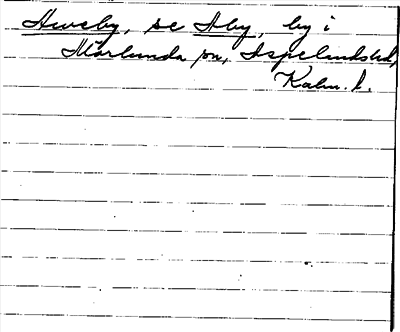 Awsby, se Aby, by i
Mörlunda sn, Aspelandshd,
Kalm. l.